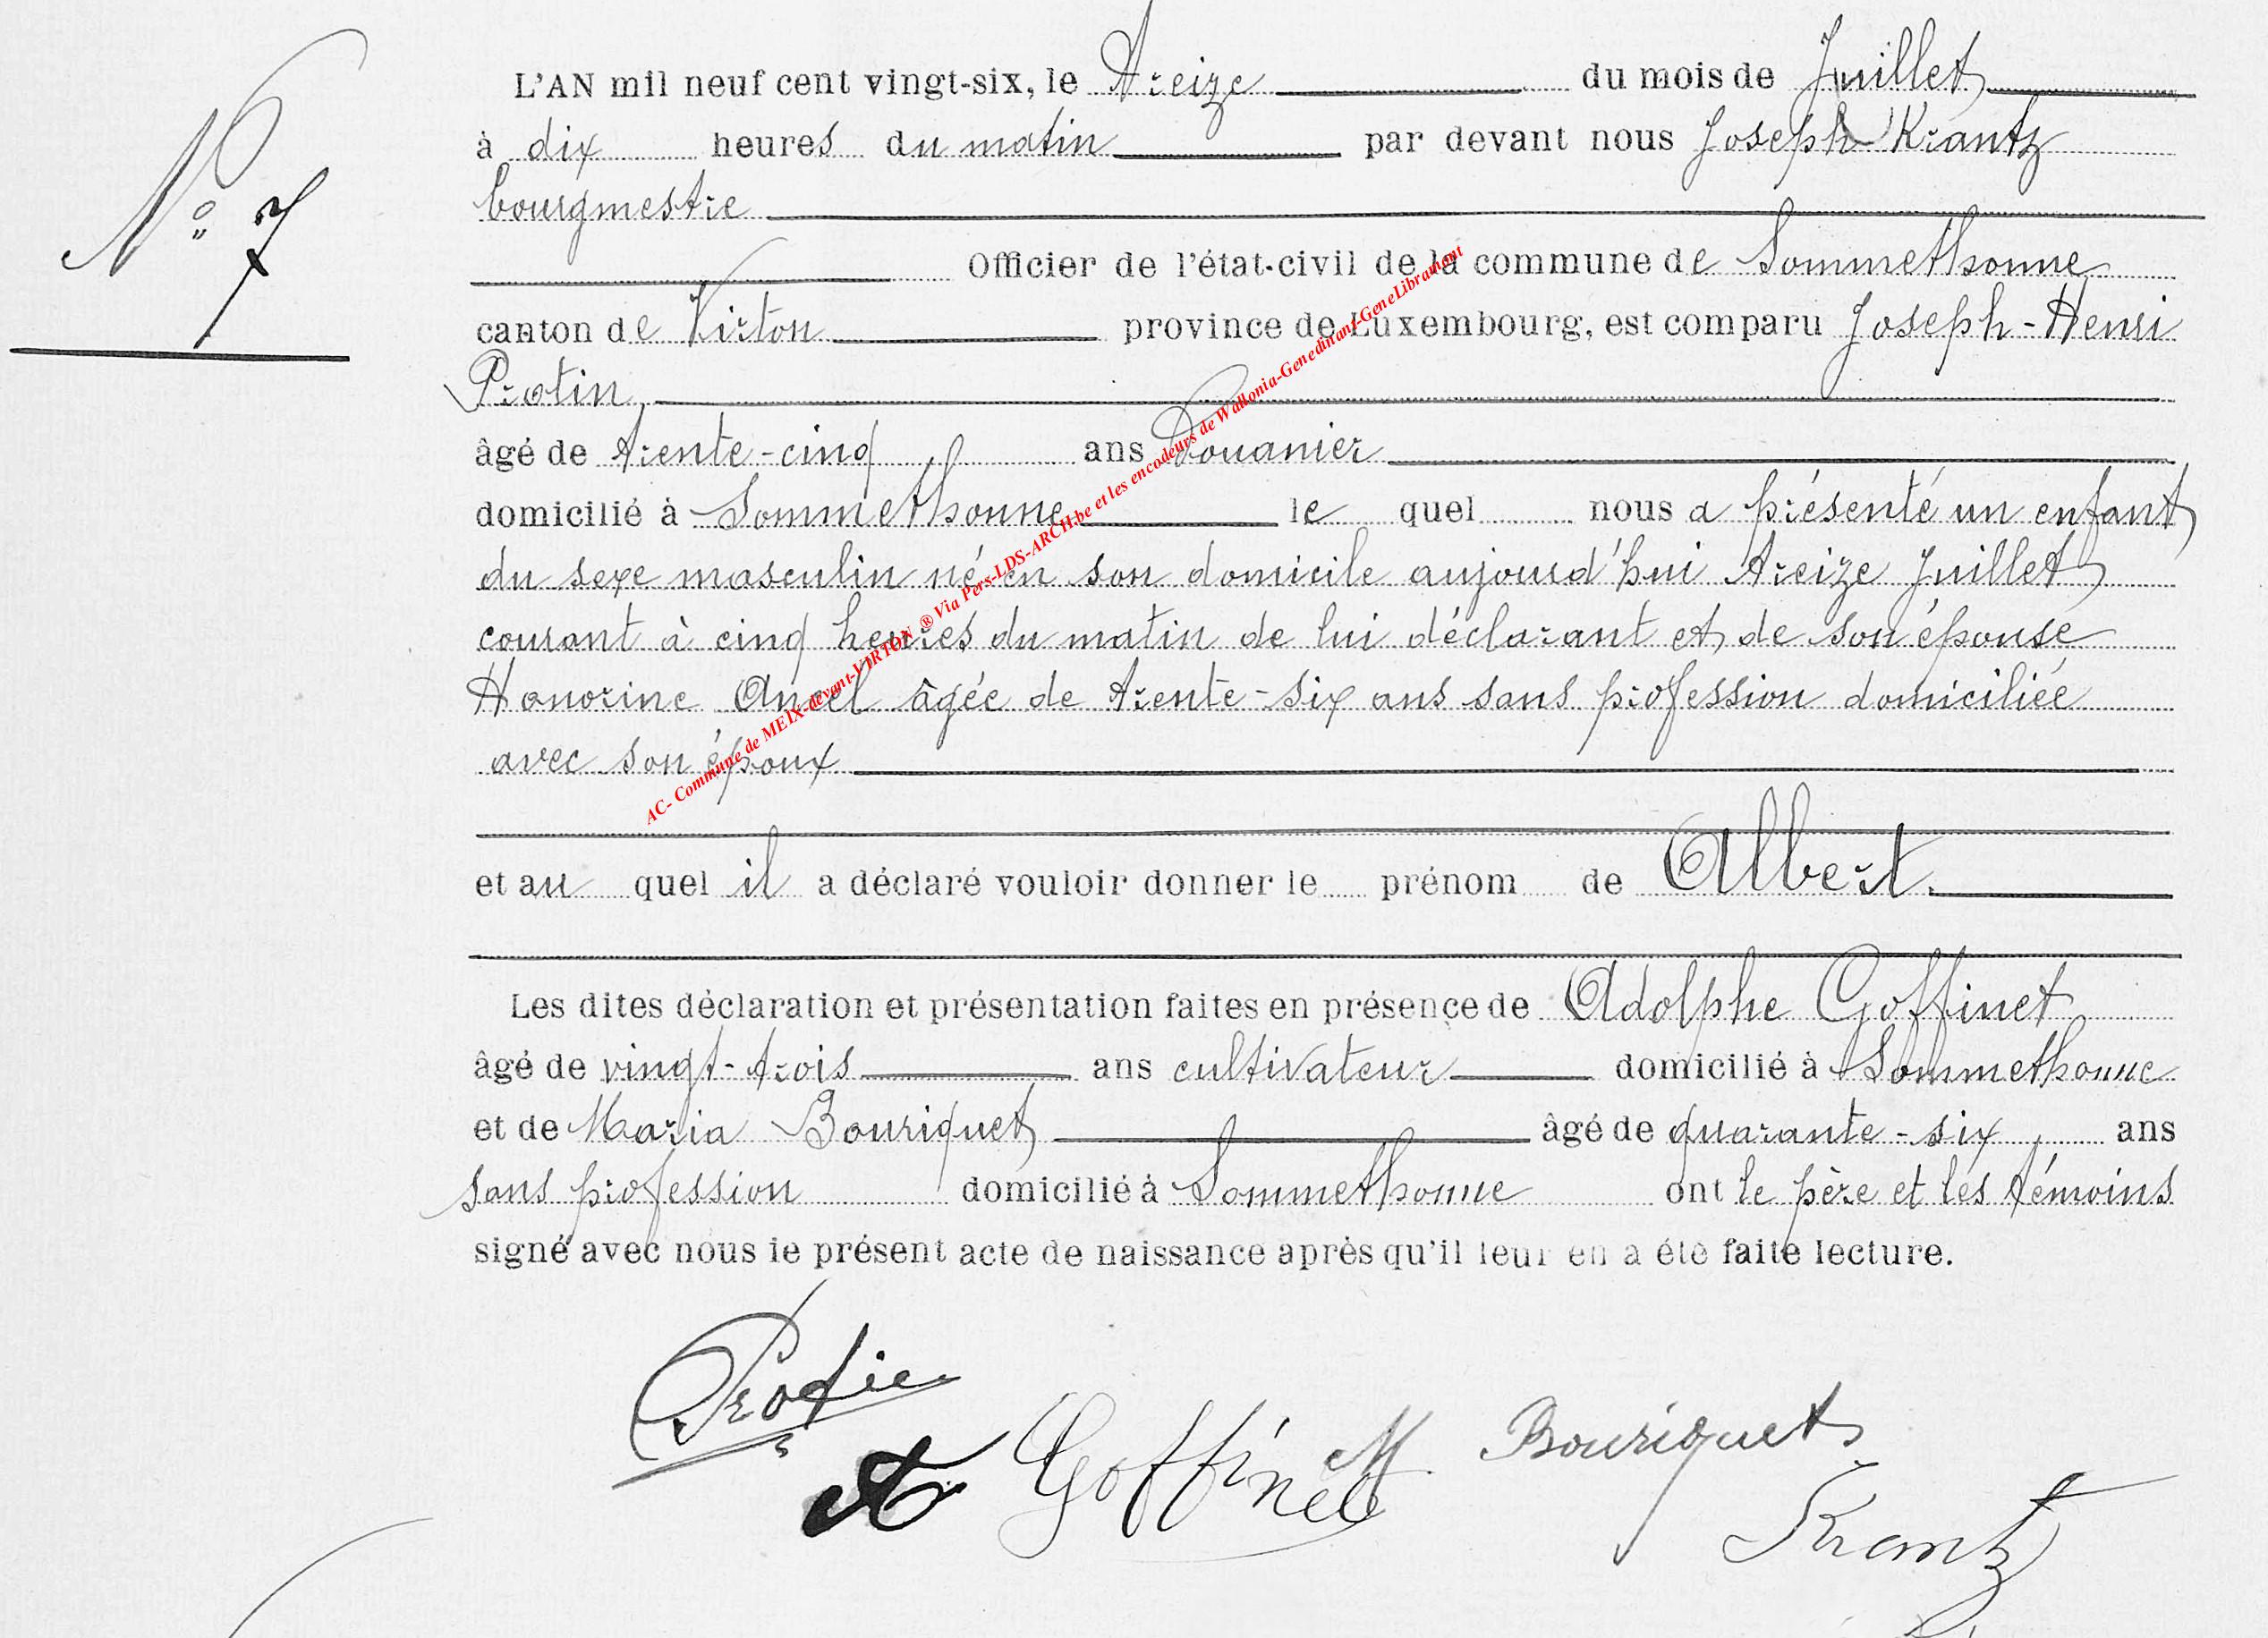 N° 7
L'AN mil neuf cent vingt-six, le treize du mois de Juillet
à dix heures du matin par devant nous Joseph Krantz
bourgmestre
Officier de l'état-civil de la commune de Sommethonne
canton de Virton province de Luxembourg, est comparu Joseph-Henri
Protin,
âgé de trente-cinq ans Douanier
domicilié à Sommethonne le quel nous a présenté un enfant
du sexe masculin né en son domicile aujourd'hui treize Juillet
courant à cinq heures du matin de lui déclarant et de son épouse
Honorine Ancel âgée de trente-six ans sans profession domiciliée
avec son époux
et au quel il a déclaré vouloir donner le prénom de Albert.
Les dites déclaration et présentation faites en présence de Adolphe Goffinet
âgé de vingt-trois ans cultivateur domicilié à Sommethonne
et de Maria Bouriquet âgé de quarante-six ans
sans profession domicilié à Sommethonne ont le père et les témoins
signé avec nous le présent acte de naissance après qu'il leur en a été faite lecture.
Protin
A Goffinet M. Bouriquet
Krantz
AC- Commune de MEIX-devant-VIRTON ® Via Pers-LDS-ARCH.be et les encodeurs de Wallonia-Genedinant-GeneLibramont